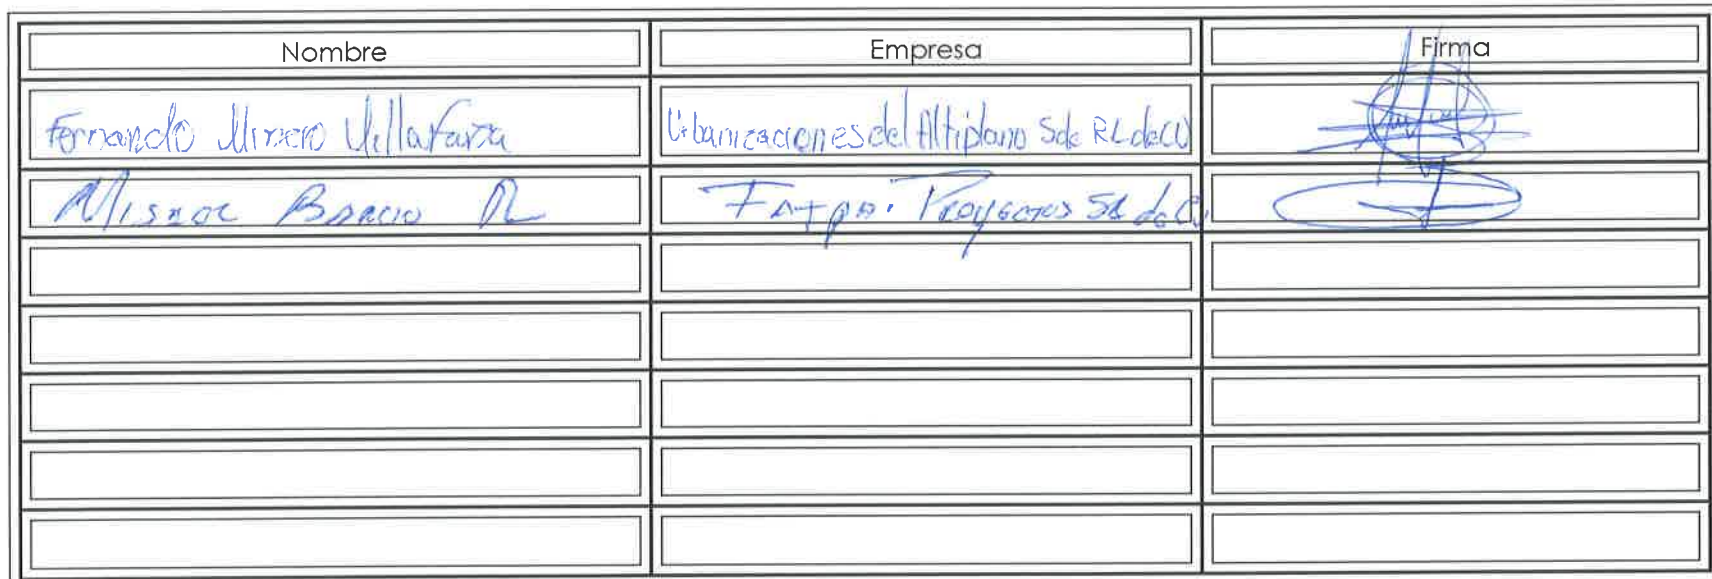 Nombre Empresa Firma
Fernando Minero Villafaña Urbanizaciones del Altiplano S de RL de CV
Misael R Proyectos SA de CV